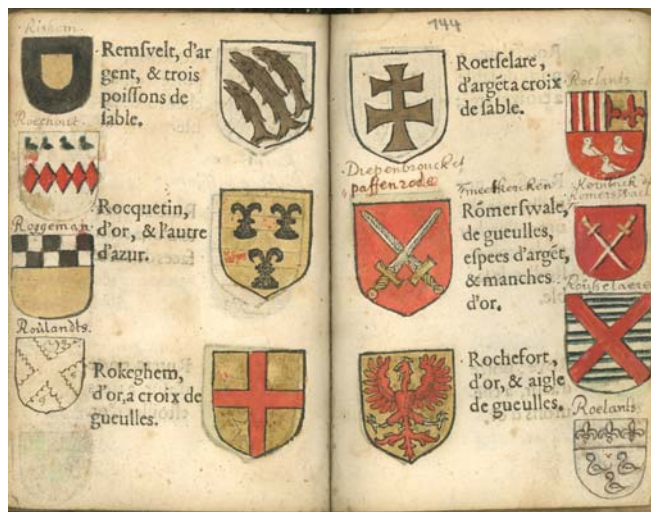 Rishom.
Remſvelt, d'ar
gent, & trois
poiſſons de
ſable.
Roechout.
Rocquetin,
d'or, & l'autre
d'azur.
Roggeman.
Roulandts.
Rokeghem,
d'or, a croix de
gueulles.
144
Roetſelare,
d'argẽt a croix
de ſable.
Roelants
Diepenbrouck et
paffenrode
meetkercken
Rõmerſwale,
de gueulles,
eſpees d'argẽt,
& manches
d'or.
Rochefort,
d'or, & aigle
de gueulles.
Roelants